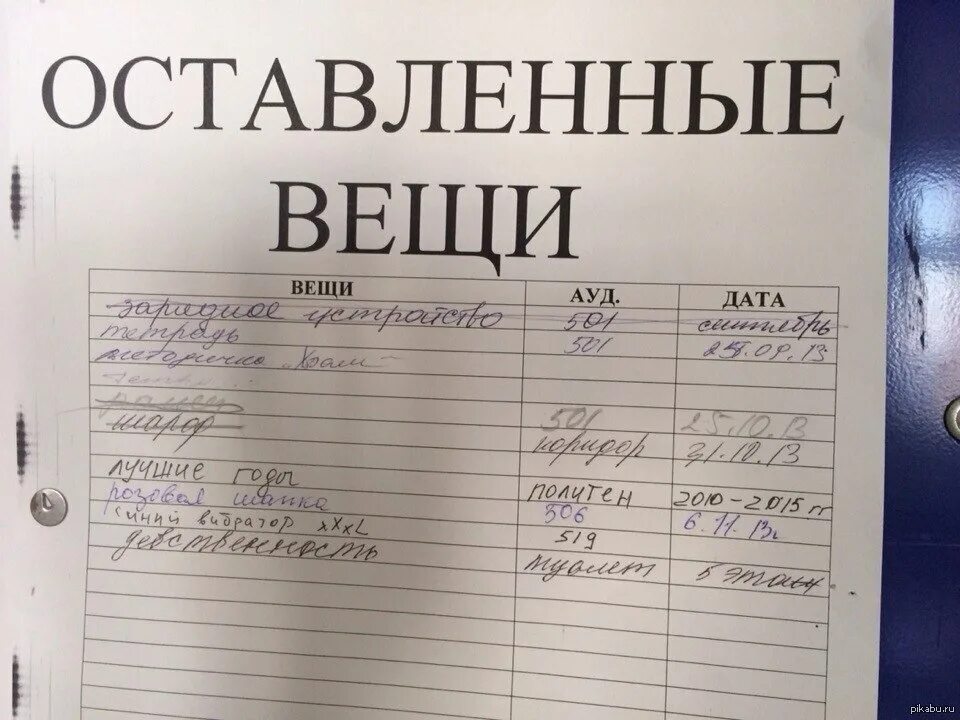 ОСТАВЛЕННЫЕ
ВЕЩИ
ВЕЩИ АУД. ДАТА
зарядное устройство 501 сентябрь
тетрадь 501 25.09.13
методичка
шарф 501 25.10.13
коридор 31.10.13
ЛУЧШИЕ ГОДЫ ПОЛИТЕН 2010-2015 гг
розовая шапка 306 6.11.13г.
синий вибратор xXxL 519
девственность туалет 5 этаж
pikabu.ru